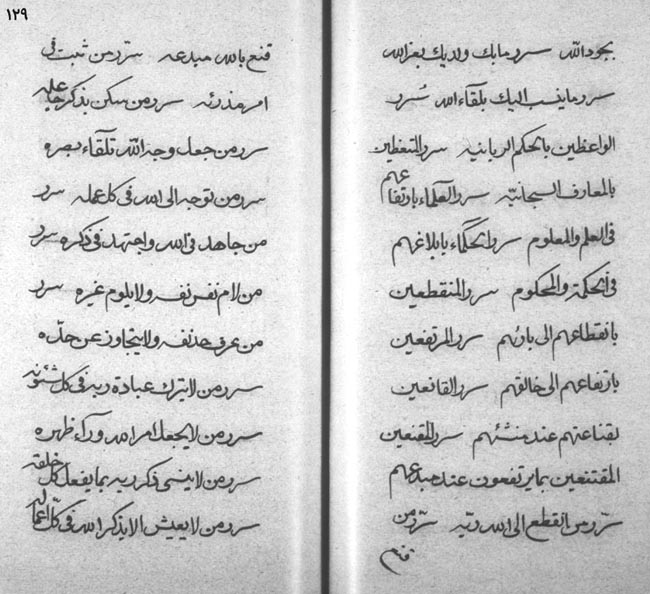 ١٢٩
بجود الله سرد مابك ولديك بعز الله
سرد ما ينسب اليك بلقاء الله سُرد
الواعظين بالحكم الربانيه سرد المتعظين
بالمعارف السبحانيّه سرد العلماء بارتفاعهم
في العلم والمعلوم سرد الحكماء بابلاغهم
في الحكمة والمحكوم سرد المنقطعين
بانقطاعهم الى بارئهم سرد المرتفعين
بارتفاعهم الى خالقهم سرد القانعين
بقناعتهم عند منشئهم سرد المقنعين
المقتنعين بما يرتفعون عند مبدعهم
سرّد من انقطع الى الله ربّه سرّد من
قنع
قنع بالله مبدعه سرد من ثبت في
امر مذرئه سرد من سكن بذكر جاعله
سرد من جعل وجه الله تلقاء بصره
سرد من توجه الى الله في كل عمله سرد
من جاهد في الله واجتهد في ذكره سرد
من لام نفس نفسه ولا يلوم غيره سرد
من عرف حد نفسه ولا يتجاوز عن حدّه
سرد من لا يترك عبادة ربه في كل شئونه
سرد من لا يجعل امر الله ورآء ظهره
سرد من لا ينسى ذكر ربه بما يفعل كل خلقه
سرد من لا يعيش الا بذكر الله في كلّ اعماله